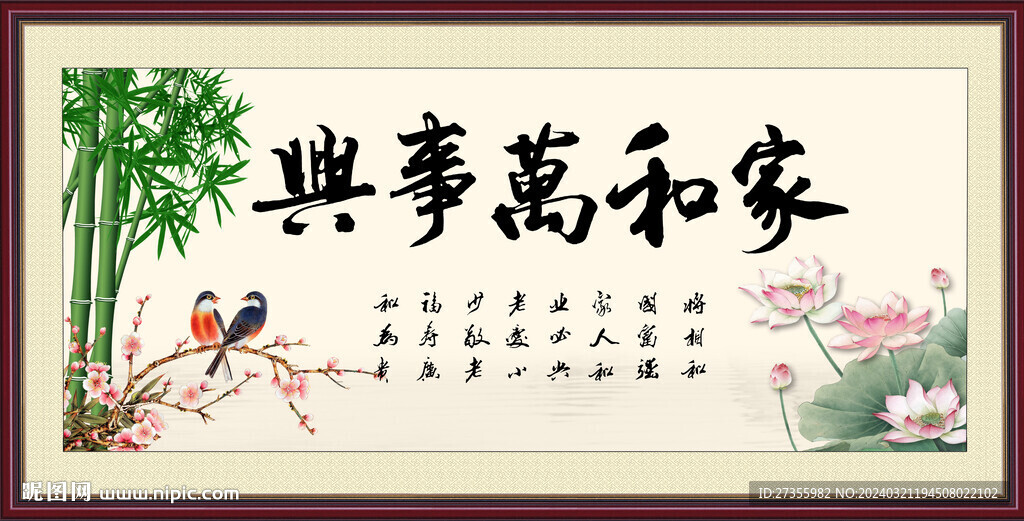 家和萬事興
將相和
國富强
家人和
业必兴
老愛小
少敬老
福寿廣
和為贵
昵图网 www.nipic.com
ID:27355982 NO:20240321194508022102